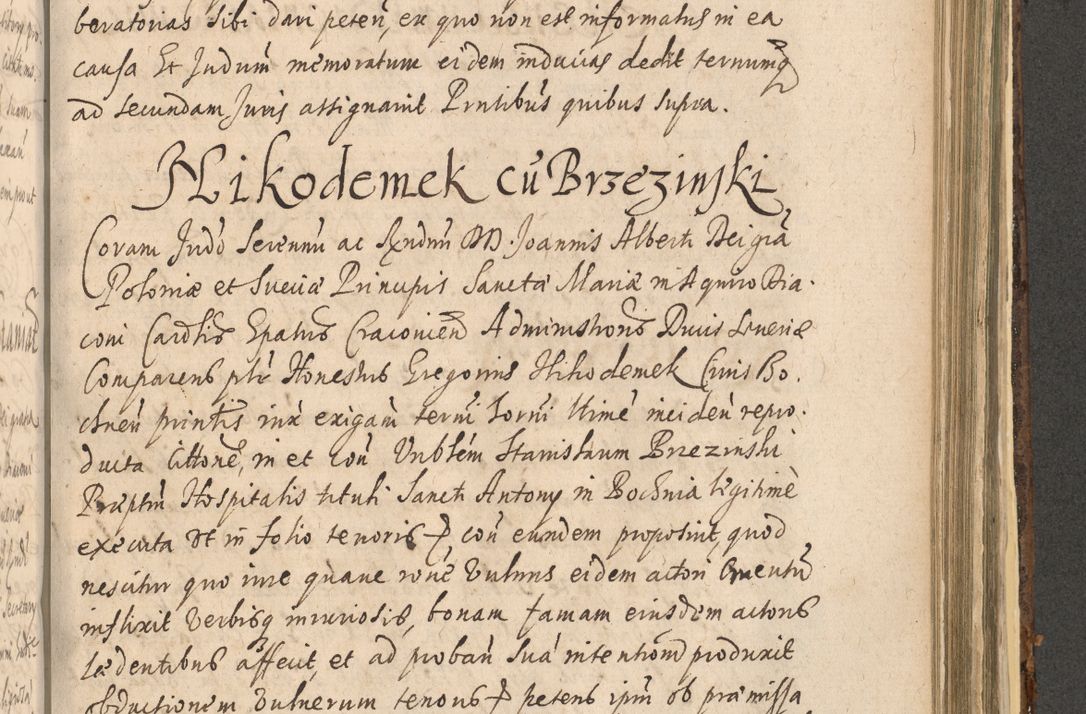 beratorias sibi dari peteñ, ex quo non est informatus in ea
causa Et Judum̃ memoratum eidem inducias dedit ternumq
ad secundam Juris assignavit Pñtibus quibus supra.
Nikodemek cũ Brzezinski
Coram Judõ Serenm̃ ac Rndm̃ DD. Joannis Alberti Dei grã
Poloniæ et Sueciæ Principis Sanctæ Mariæ in Aquiro Dia-
coni Cardlis Epatus Cracovien Adminstroris Ducis Severiæ
Comparens plr Honestus Gregorius Nikodemek Civis Bo-
chnen̄ iux exigam̄ termi incideñ repro-
ducta Cittone, in et Con̄ Vnblem Stanislaum Brzezinski
Præptm̃ Hospitalis tituli Sancti Antony in Bochnia legitimè
executa Et in folio tenoris con̄ eundem proposuit, quod
nescitur quo iure quave rone Vulnus eidem actori Cruentũ
inflixit Verbisq iniuriosis, bonam famam eiusdem actoris
lædentibus affecit, et ad proban̄ suã intentionẽ produxit
obductionem Vulnerum tenoris petens ipm̃ ob præmissa